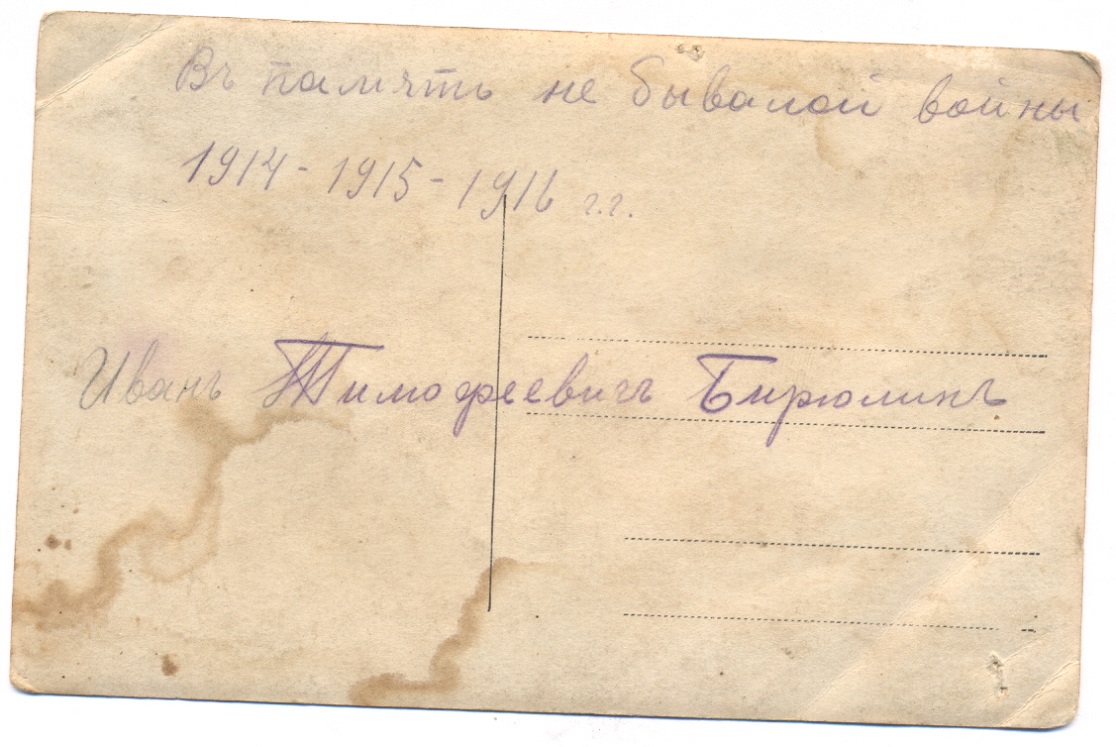 Въ память не бывалой войны
1914-1915-1916 г.г.
Иванъ Тимофеевичъ Бирюлинъ